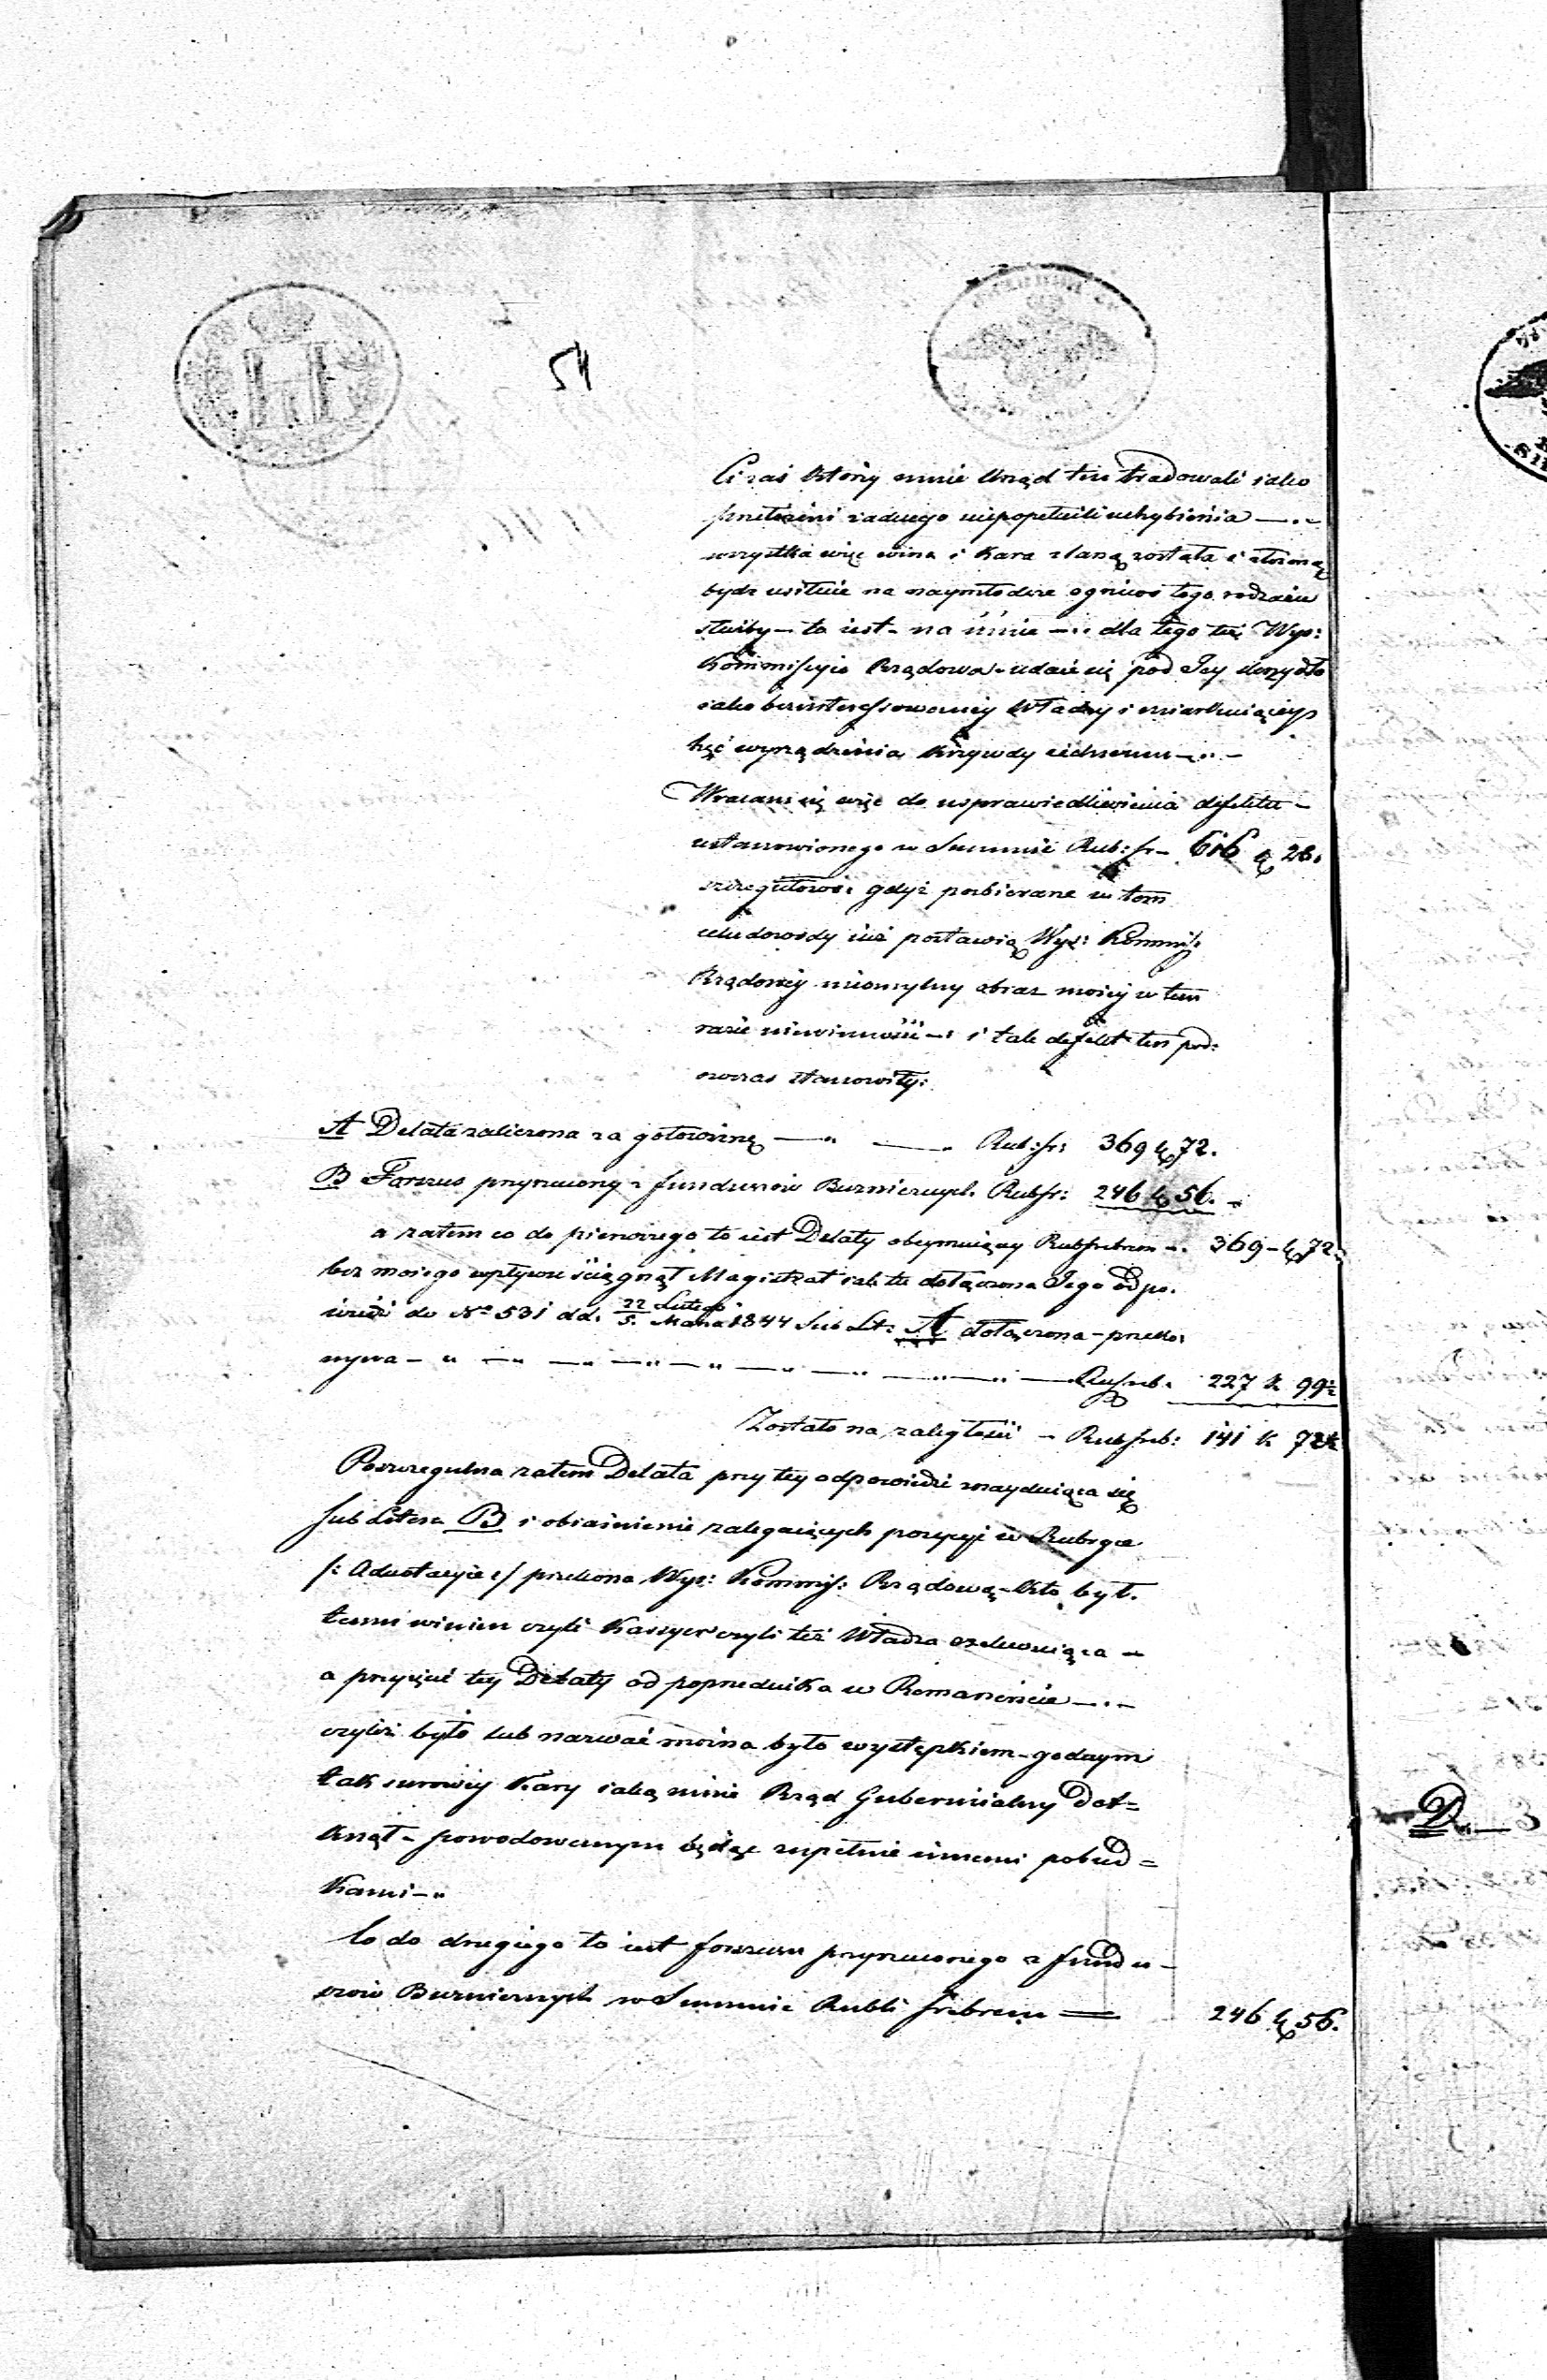 54
Ci zaś którzy mnie Urząd ten tradowali iako
przełożeni żadnego niepopełnili uchybienia —.„
wszystka więc wina i kara zlaną została i złożoną
bydź usiłuie na naymłodsze ogniwo tego rodzaiu
służby — to iest — na mnie —„ dla tego też Wys:
Kommissyio Rządowa — udaie się pod Jey skrzydło
iako bezinteressowaney Władzy i
chęć wyrządzenia krzywdy iednemu —„—
Wracam się więc do usprawiedliwienia defektu —
ustanowionego w Summie Rub: sr — 616 k 28.
szczegułowo, gdyż pozbierane w tem
celu dowody iuż postawią Wys: Kommiss:
Rządowey nieomylny obraz moiey w tem
razie niewinności —: i tak defekt ten pod:
owczas stanowiły:
A Delata zaliczona za gotowiznę —„ —„ Rub: sr: 369 k 72.
B Forszus przyrzucony z funduszów Burmiczych Rub sr: 246 k 56. —
a zatem co do pierwszego to iest Delaty obeymuiący Rub srebrem —. 369 — k 72.
bez moiego wpływu ściągnął Magistrat iak tu dołączona Jego odpo:
wiedź do No 531 dd. 22 Lutego / 5. Marca 1844 Sub Lt: A dołączona — przeko:
nywa — „ — „ — „ — „ — „ — „ — „ — Rub sreb. 227 k 99½
Zostało na zaległości — Rub sreb: 141 k 72½
Poszczegulna zatem Delata przy tey odpowiedzi znayduiąca się
sub Litera B i obiaśnienie zalegaiących pozycyi w Rubryce
/: Adnotacyie :/ przekona Wys: Kommiss: Rządową — kto był.
temu winien czyli Kassyer czyli też Władza —
a przyięcie tey Delaty od poprzednika w Remanencie —.—
czyliż było lub nazwać można było występkiem — godnym
tak surowey kary iaką mnie Rząd Gubernialny dot=
knął — powodowanym będąc zupełnie innemi pobud=
kami —„
Co do drugiego to iest forszusu przyrzuconego z fundu —
szów Burmiczych w Summie Rubli srebrem = 246 k 56.
D